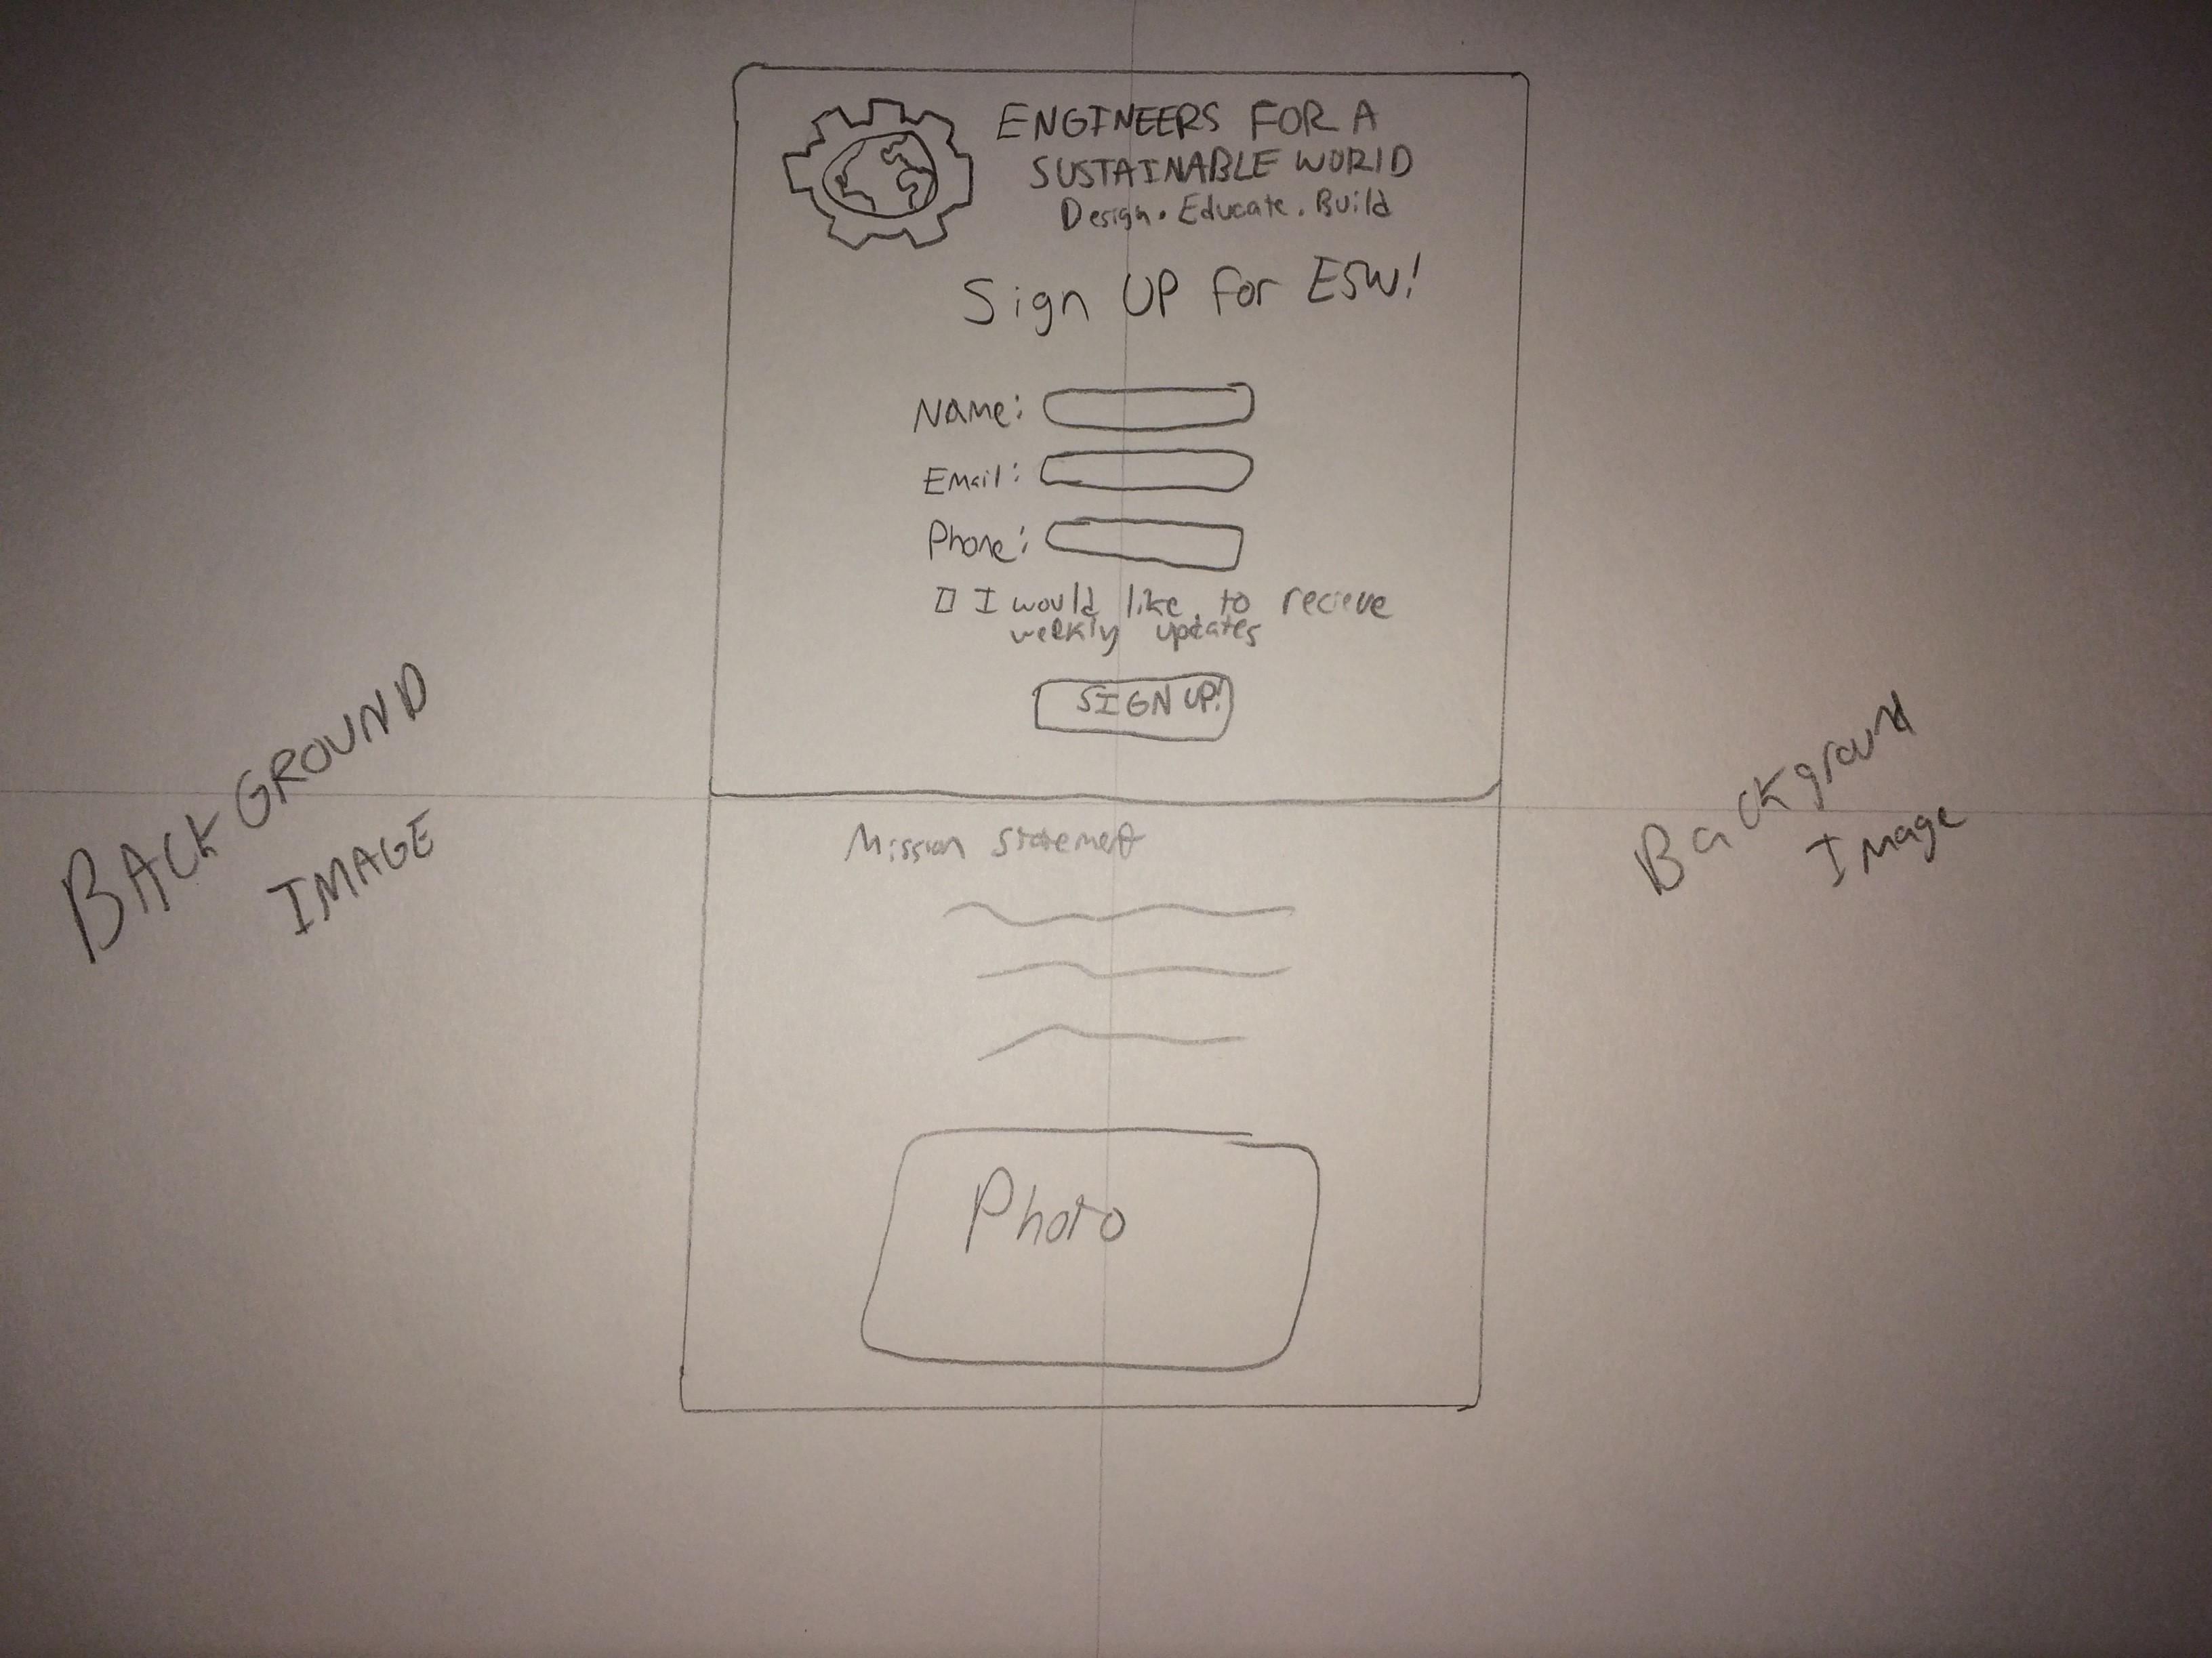 ENGINEERS FOR A
SUSTAINABLE WORLD
Design • Educate • Build
Sign UP for ESW!
Name:
Email:
Phone:
I would like to recieve
weekly updates
SIGN UP!
BACKGROUND
IMAGE
Background
Image
Mission Statement
Photo